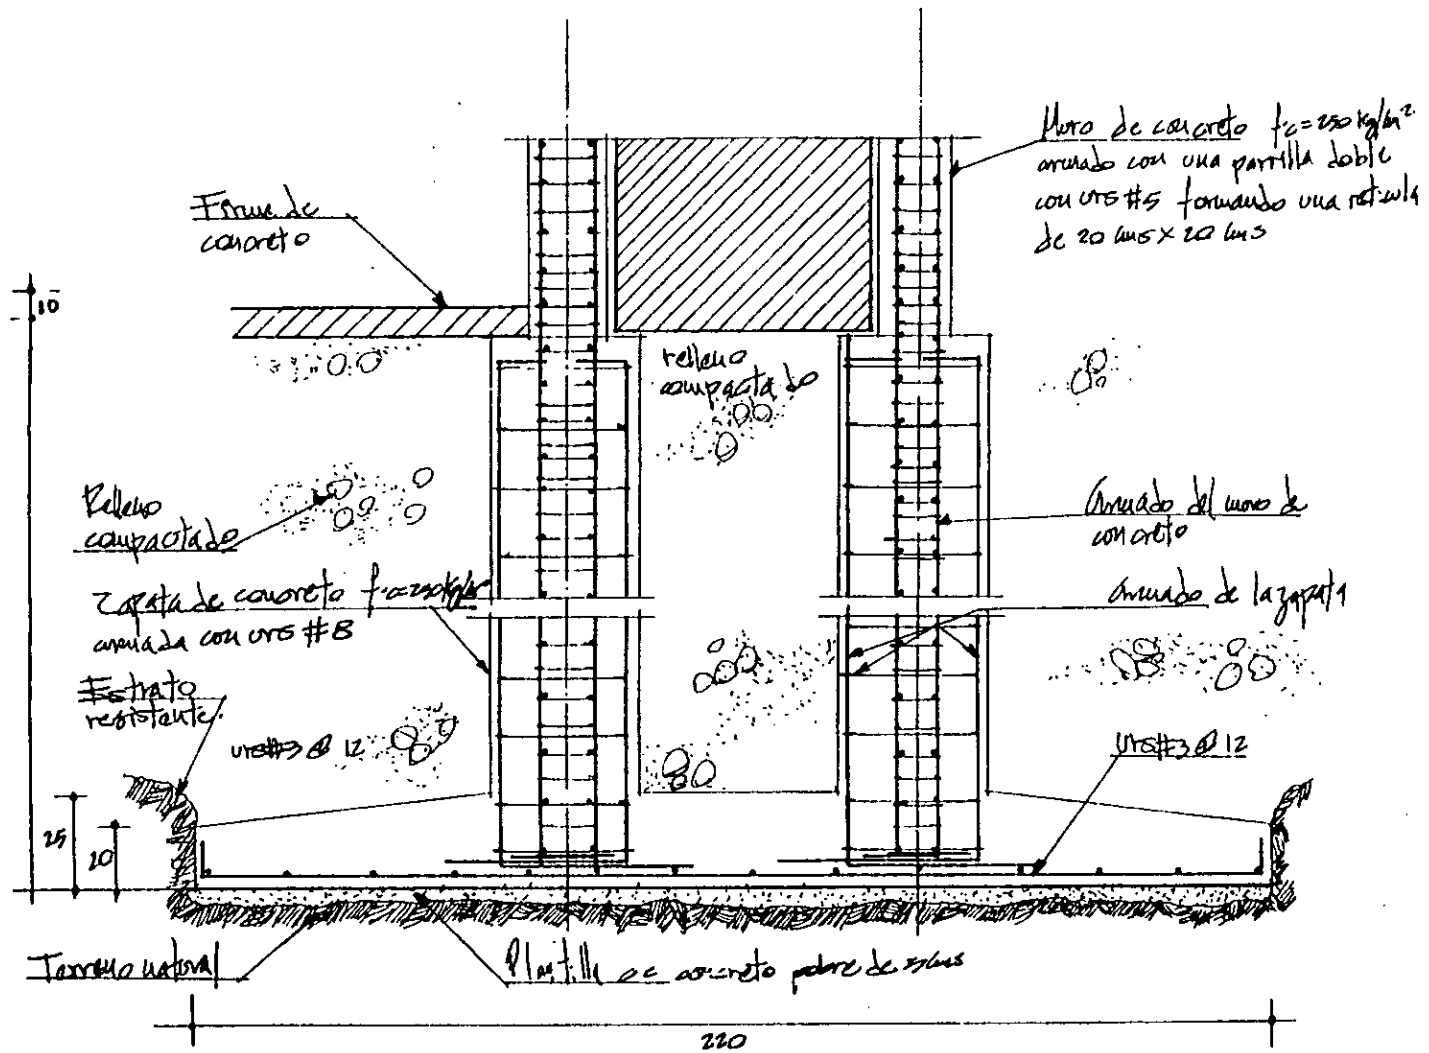 Muro de concreto f'c=250 kg/cm²
armado con una parrilla doble
con vrs #5 formando una reticula
de 20 cms x 20 cms
Firme de
concreto
10
relleno
compactado
Relleno
compactado
Armado del muro de
concreto
Zapata de concreto f'c=250kg/
armada con vrs #8
Armado de la zapata
Estrato
resistente
vrs#3 @ 12
vrs#3 @ 12
25
20
Terreno natural
Plantilla de concreto pobre de 5 cms
220